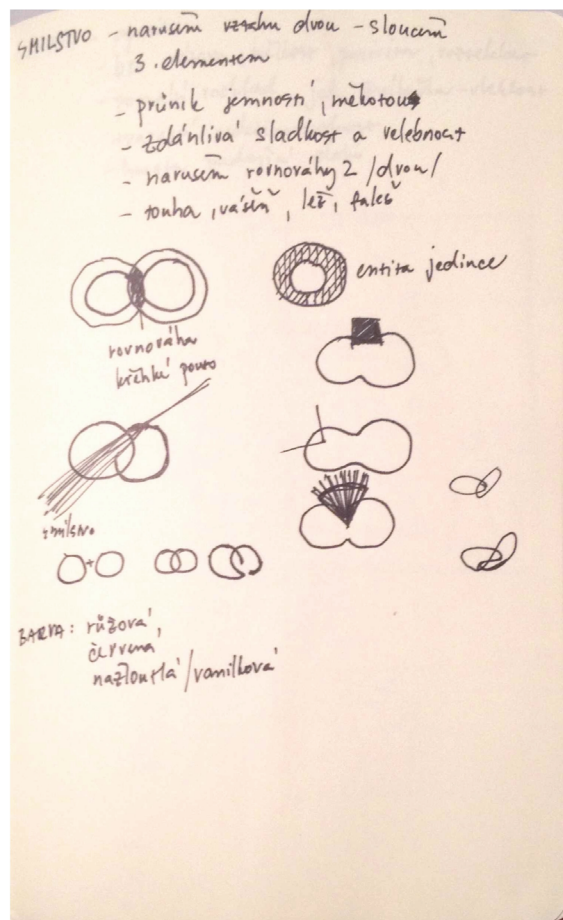 SMILSTVO - narušení vztahu dvou - sloučení
3. elementem
- průnik jemností, měkotou
- zdánlivá sladkost a velebnost
- narušení rovnováhy 2 /dvou/
- touha, vášeň, lež, faleš
entita jedince
rovnováha
křehké pouto
smilstvo
+
BARVA: růžová,
červená,
nažloutlá/vanilková